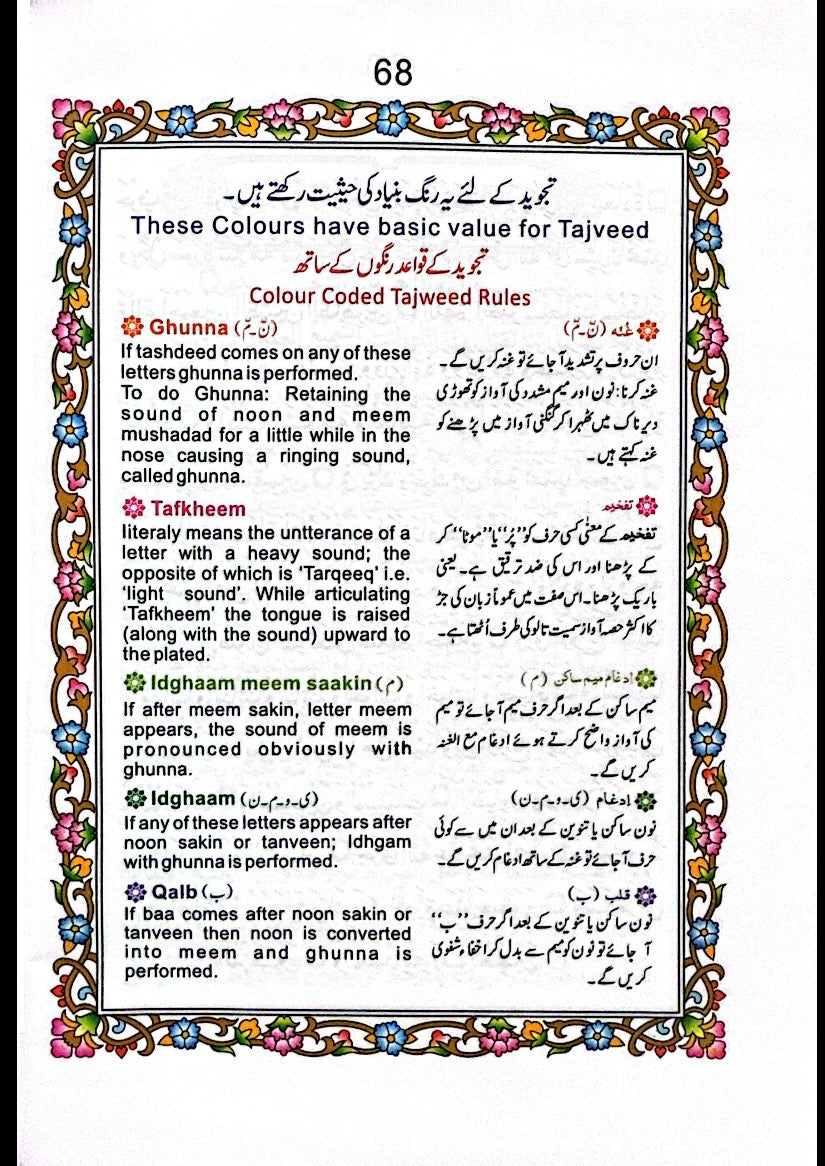 68
تجوید کے لئے یہ رنگ بنیاد کی حیثیت رکھتے ہیں۔
These Colours have basic value for Tajveed
تجوید کے قواعد رنگوں کے ساتھ
Colour Coded Tajweed Rules
Ghunna (نّ-مّ)
If tashdeed comes on any of these
letters ghunna is performed.
To do Ghunna: Retaining the
sound of noon and meem
mushadad for a little while in the
nose causing a ringing sound,
called ghunna.
غنه (نّ-مّ)
ان حروف پر تشدید آ جائے تو غنہ کریں گے۔
غنہ کرنا: نون اور میم مشدد کی آواز کو تھوڑی
دیر ناک میں ٹھہرا کر گنگنی آواز میں پڑھنے کو
غنہ کہتے ہیں۔
Tafkheem
literaly means the untterance of a
letter with a heavy sound; the
opposite of which is ‘Tarqeeq’ i.e.
‘light sound’. While articulating
‘Tafkheem’ the tongue is raised
(along with the sound) upward to
the plated.
تفخیم
تفخیم کے معنٰی کسی حرف کو ”پُر“ یا ”موٹا“ کر
کے پڑھنا اور اس کی ضد ترقیق ہے۔ یعنی
باریک پڑھنا۔ اس صفت میں عموماً زبان کی جڑ
کا اکثر حصہ آواز سمیت تالو کی طرف اُٹھتا ہے۔
Idghaam meem saakin (م)
If after meem sakin, letter meem
appears, the sound of meem is
pronounced obviously with
ghunna.
ادغام میم ساکن (م)
میم ساکن کے بعد اگر حرف میم آ جائے تو میم
کی آواز واضح کرتے ہوئے ادغام مع الغنہ
کریں گے۔
Idghaam (ی-و-م-ن)
If any of these letters appears after
noon sakin or tanveen; Idhgam
with ghunna is performed.
ادغام (ی-و-م-ن)
نون ساکن یا تنوین کے بعد ان میں سے کوئی
حرف آ جائے تو غنہ کے ساتھ ادغام کریں گے۔
Qalb (ب)
If baa comes after noon sakin or
tanveen then noon is converted
into meem and ghunna is
performed.
قلب (ب)
نون ساکن یا تنوین کے بعد اگر حرف ”ب“
آ جائے تو نون کو میم سے بدل کر اخفاء شفوی
کریں گے۔